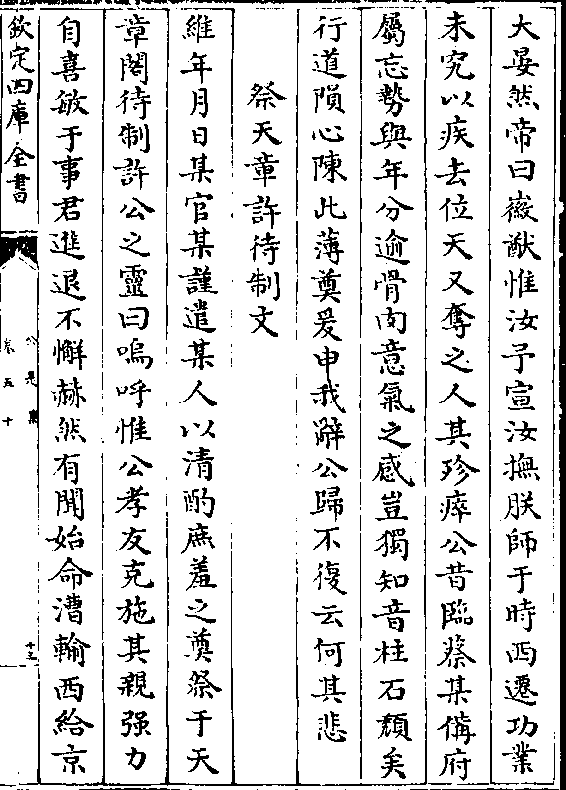 大晏然帝曰嶶猷惟汝予宣汝撫朕師于時西遷功業
未究以疾去位天又奪之人其殄瘁公昔臨蔡某備府
屬忘勢與年分逾骨肉意氣之感豈獨知音柱石頽矣
行道隕心陳此薄奠爰申我辭公歸不復云何其悲
祭天章許待制文
維年月日某官某謹遣某人以清酌庶羞之奠祭于天
章閣待制許公之靈曰嗚呼惟公孝友克施其親强力
自喜敏于事君進退不懈赫然有聞始命漕輪西給京
欽定四庫全書
公是集
卷五十
十三